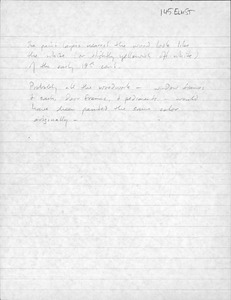 145 EAST
The paint layers nearest the wood look like
the white or slightly yellowish off white
of the early 19th cent.
Probably all the woodwork – window frames
& sash, door frames, & pediments – would
have been painted the same color
originally –